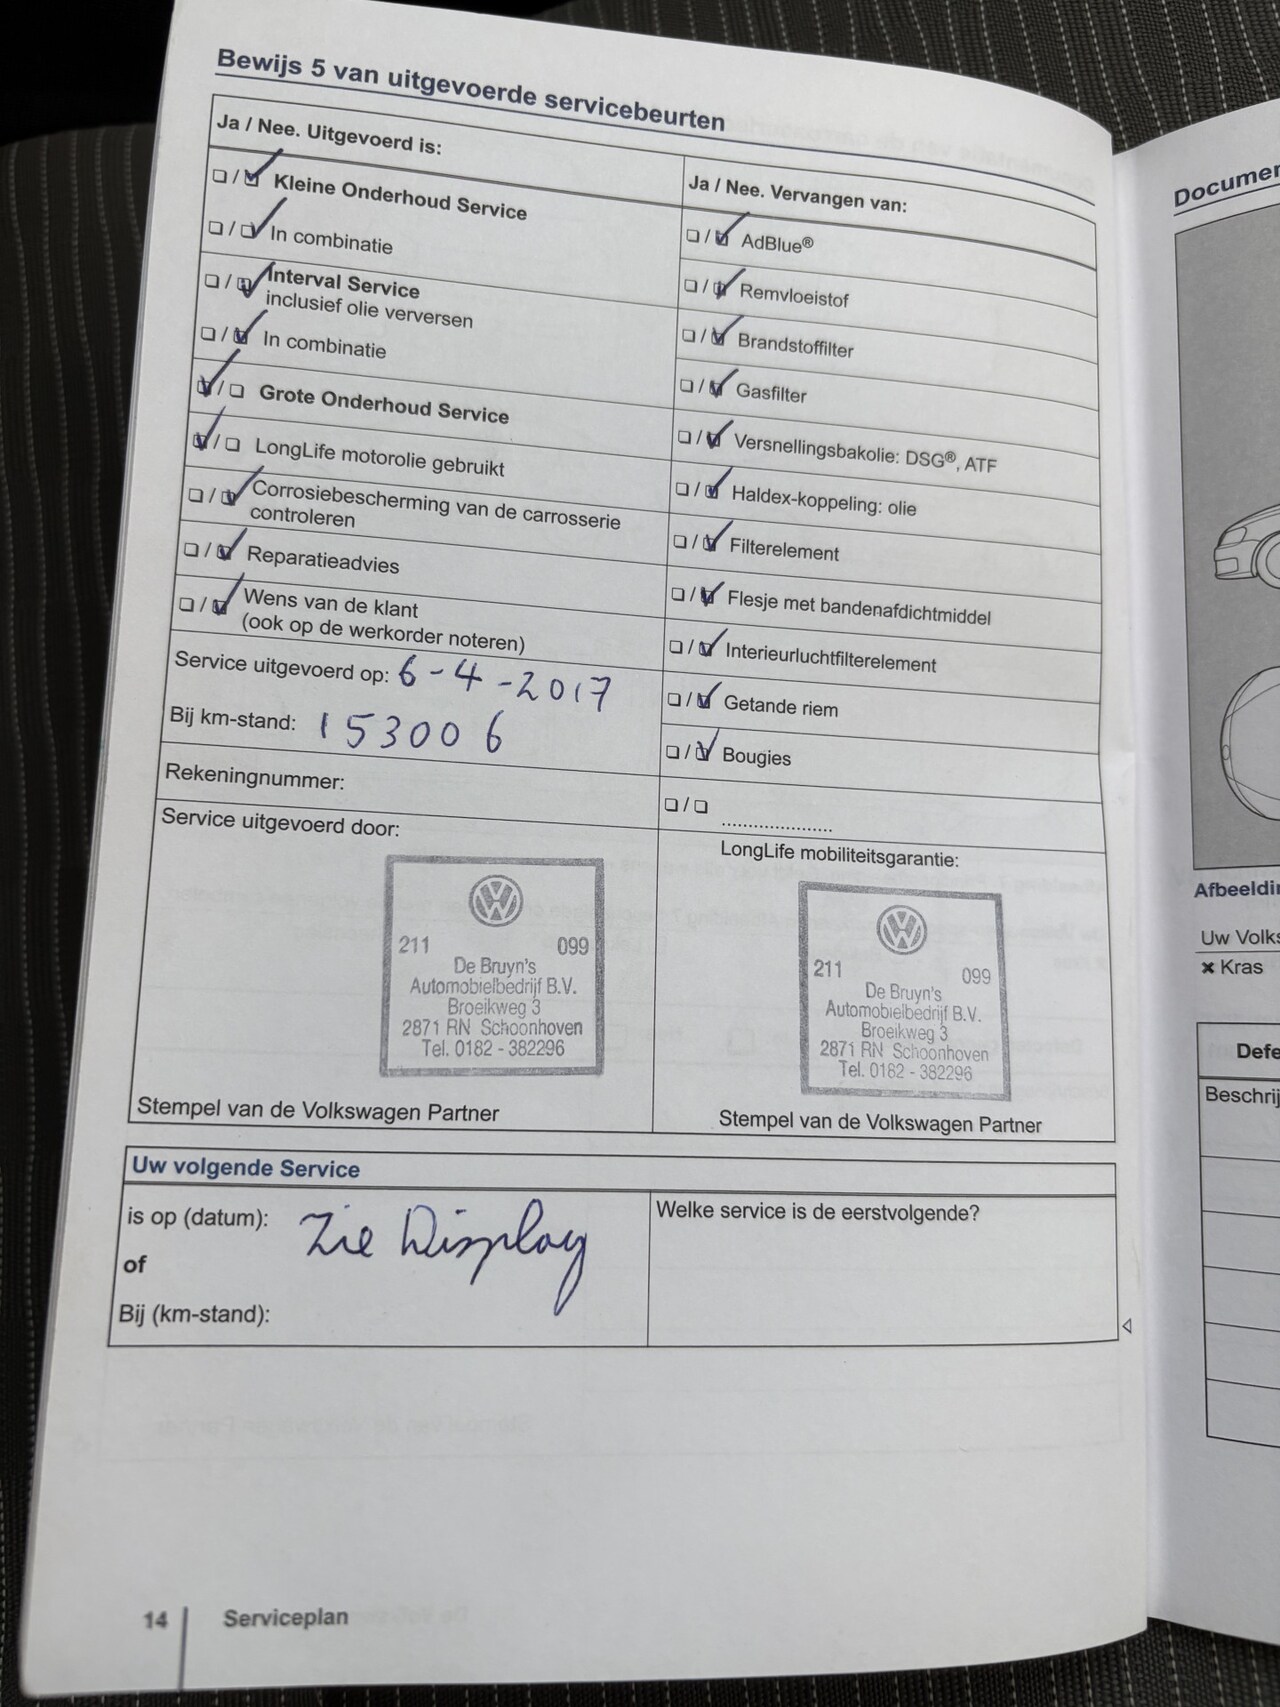 Bewijs 5 van uitgevoerde servicebeurten
Ja / Nee. Uitgevoerd is:
Kleine Onderhoud Service
In combinatie
Interval Service
inclusief olie verversen
In combinatie
Grote Onderhoud Service
LongLife motorolie gebruikt
Corrosiebescherming van de carrosserie
controleren
Reparatieadvies
Wens van de klant
(ook op de werkorder noteren)
Service uitgevoerd op: 6-4-2017
Bij km-stand: 153006
Rekeningnummer:
Service uitgevoerd door:
211 099
De Bruyn's
Automobielbedrijf B.V.
Broeikweg 3
2871 RN Schoonhoven
Tel. 0182 - 382296
Stempel van de Volkswagen Partner
Ja / Nee. Vervangen van:
AdBlue®
Remvloeistof
Brandstoffilter
Gasfilter
Versnellingsbakolie: DSG®, ATF
Haldex-koppeling: olie
Filterelement
Flesje met bandenafdichtmiddel
Interieurluchtfilterelement
Getande riem
Bougies
LongLife mobiliteitsgarantie:
211 099
De Bruyn's
Automobielbedrijf B.V.
Broeikweg 3
2871 RN Schoonhoven
Tel. 0182 - 382296
Stempel van de Volkswagen Partner
Uw volgende Service
is op (datum): Zie Display
of
Bij (km-stand):
Welke service is de eerstvolgende?
14 Serviceplan
Documen
Afbeeldi
Uw Volks
× Kras
Defe
Beschrij